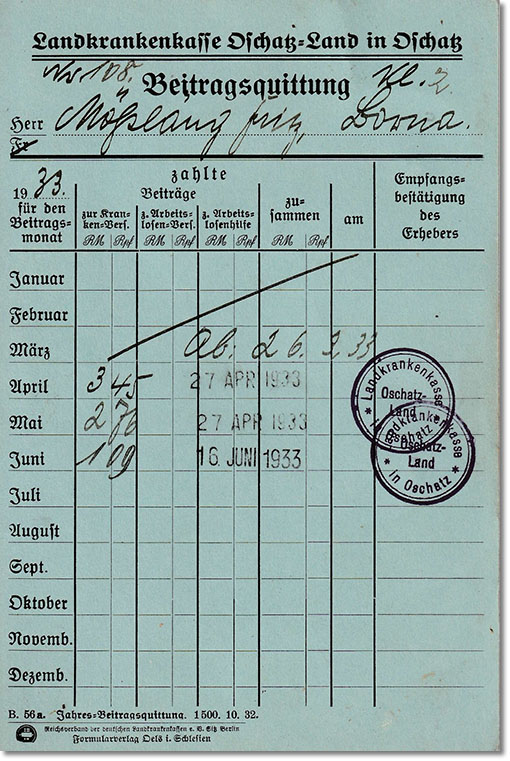 Landkrankenkasse Oschatz-Land in Oschatz
Nr 108.
Beitragsquittung Kl. 2.
Herr Mößläng Fritz, Borna.
Fr
zahlte
1933.
für den
Beitrags-
monat
Beiträge
zur Kran-
ken-Vers.
z. Arbeits-
losen-Vers.
z. Arbeits-
losenhilfe
zu-
sammen
am
Empfangs-
bestätigung
des
Erhebers
RM Rpf RM Rpf RM Rpf RM Rpf
Januar
Februar
März Ab: 26. 3. 33
April 3 45 27 APR 1933
Mai 2 76 27 APR 1933
Juni 1 09 16 JUNI 1933
Juli
August
Sept.
Oktober
Novemb.
Dezemb.
* Landkrankenkasse *
Oschatz-
Land
in Oschatz
* Landkrankenkasse *
Oschatz-
Land
in Oschatz
B. 56a. Jahres-Beitragsquittung. 1500. 10. 32.
Reichsverband der deutschen Landkrankenkassen e. V. Sitz Berlin
Formularverlag Oels i. Schlesien